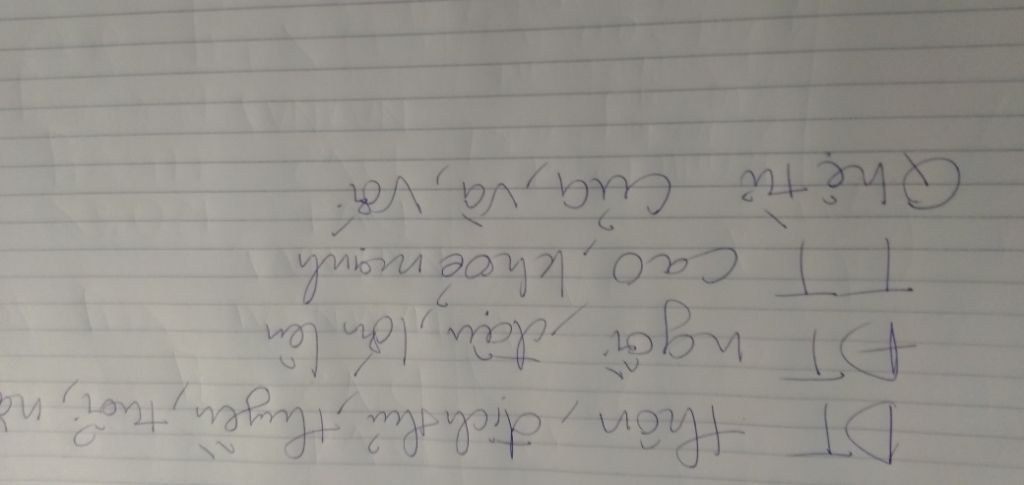 DT thôn, địch thủ, thuyền, tuổi,
ĐT ngồi, dận, lớn lên
TT cao, khoẻ mạnh
Qhệ từ của, và, với